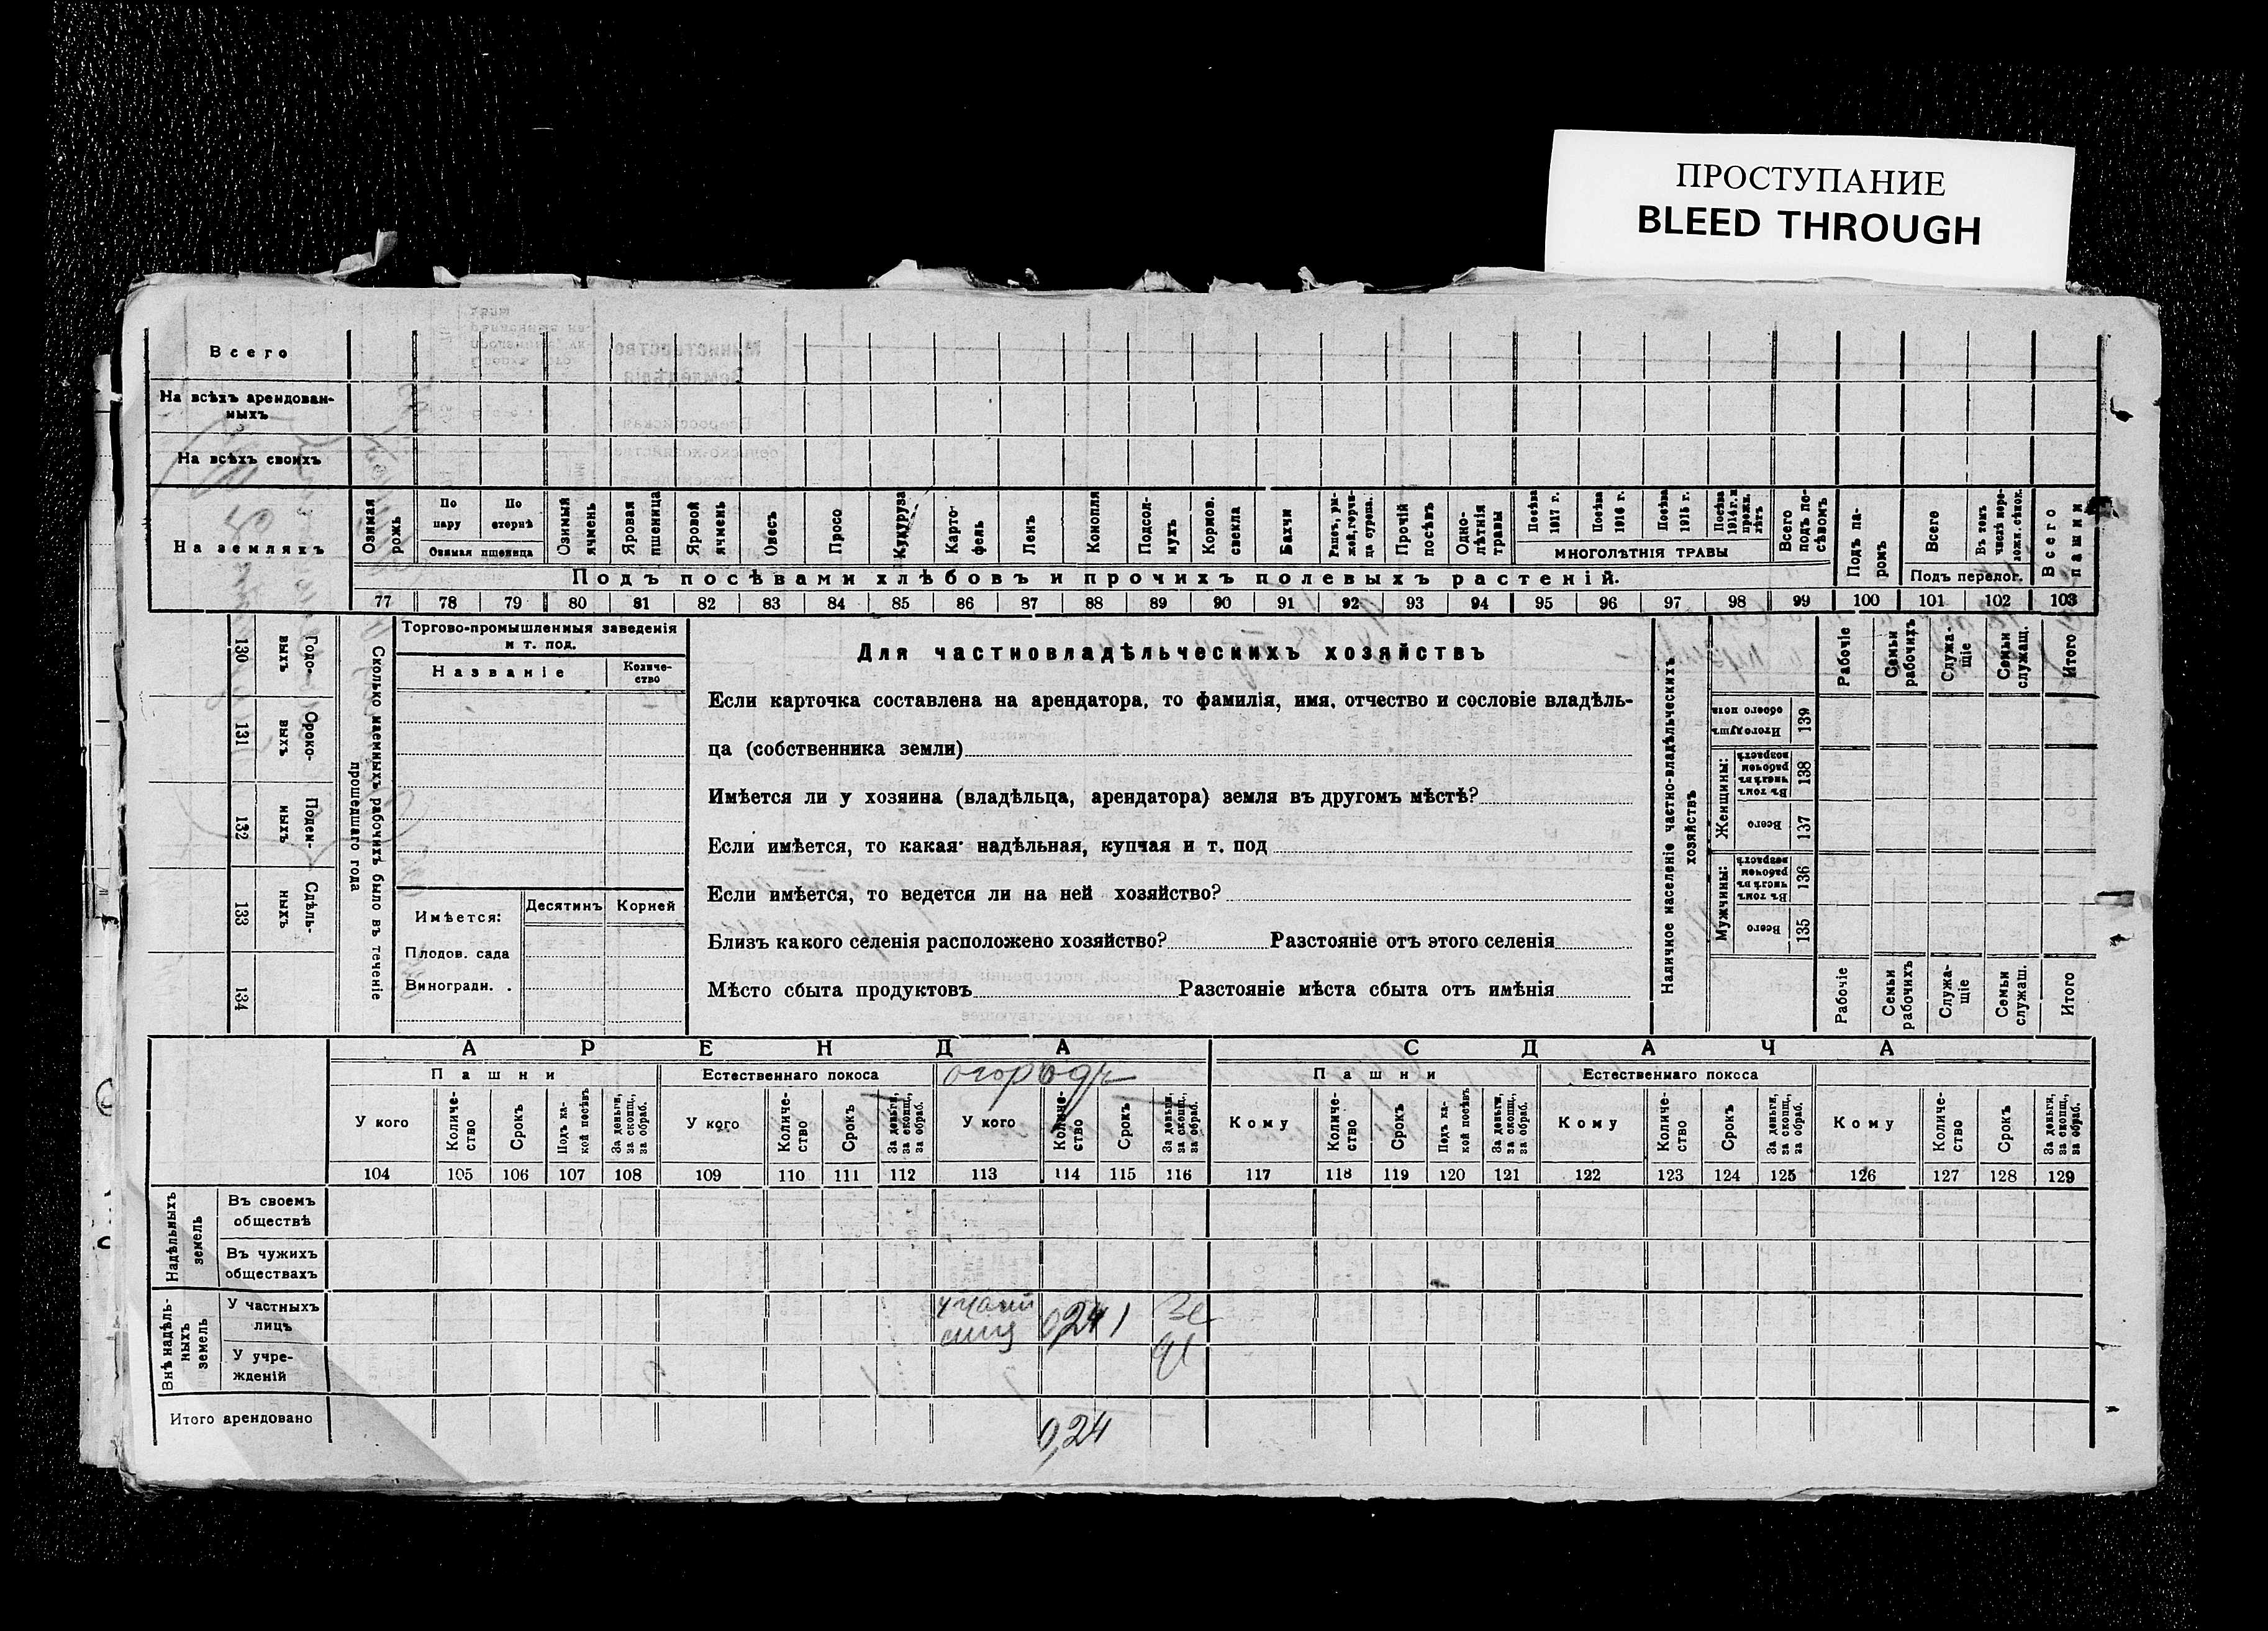 ПРОСТУПАНИЕ
BLEED THROUGH
Всего
На всѣхъ арендован-
ныхъ
На всѣхъ своихъ
На земляхъ
Озимая рожь
По пару
По стернѣ
Озимая пшеница
Озимый ячмень
Яровая пшеница
Яровой ячмень
Овесъ
Просо
Кукуруза
Карто-
фель
Ленъ
Конопля
Подсол-
нухъ
Кормов. свекла
Бахчи
Прочій посѣвъ
Одно-
лѣтнія травы
Посѣва 1917 г.
Посѣва 1916 г.
Посѣва 1915 г.
Посѣва 1914 г. и прежн. лѣтъ
МНОГОЛѢТНІЯ ТРАВЫ
Всего подъ по-
сѣвомъ
Подъ па-
ромъ
Всего
Въ томъ числѣ пере-
ложн. сѣнок.
Подъ перелог.
Всего пашни
Подъ посѣвами хлѣбовъ и прочихъ полевыхъ растеній.
77 78 79 80 81 82 83 84 85 86 87 88 89 90 91 92 93 94 95 96 97 98 99 100 101 102 103
130 Годо-
выхъ
131 Сроко-
выхъ
132 Поден-
ныхъ
133 Сдѣль-
ныхъ
134
Сколько наемныхъ рабочихъ было въ теченіе
прошедшаго года
Торгово-промышленныя заведенія
и т. под.
Названіе
Количе-
ство
Имѣется:
Десятинъ
Корней
Плодов. сада
Виноградн. .
Для частновладѣльческихъ хозяйствъ
Если карточка составлена на арендатора, то фамилія, имя, отчество и сословіе владѣль-
ца (собственника земли)
Имѣется ли у хозяина (владѣльца, арендатора) земля въ другомъ мѣстѣ?
Если имѣется, то какая: надѣльная, купчая и т. под
Если имѣется, то ведется ли на ней хозяйство?
Близъ какого селенія расположено хозяйство? Разстояніе отъ этого селенія
Мѣсто сбыта продуктовъ Разстояніе мѣста сбыта отъ имѣнія
Наличное населеніе частно-владѣльческихъ
хозяйствъ
Рабочіе
Семьи рабочихъ
Служа-
щіе
Семьи служащ.
Итого
Итого душъ обоего пола
139
Женщины:
Въ томъ числѣ въ рабочемъ возрастѣ
138
Всего
137
Мужчины:
Въ томъ числѣ въ рабочемъ возрастѣ
136
Всего
135
Рабочіе
Семьи рабочихъ
Служа-
щіе
Семьи служащ.
Итого
АРЕНДА
СДАЧА
Пашни
Естественнаго покоса
огородъ
Пашни
Естественнаго покоса
У кого
Количе-
ство
Срокъ
Подъ ка-
кой посѣвъ
За деньги, за скопщ., за обраб.
У кого
Количе-
ство
Срокъ
За деньги, за скопщ., за обраб.
У кого
Количе-
ство
Срокъ
За деньги, за скопщ., за обраб.
Кому
Количе-
ство
Срокъ
Подъ ка-
кой посѣвъ
За деньги, за скопщ., за обраб.
Кому
Количе-
ство
Срокъ
За деньги, за скопщ., за обраб.
Кому
Количе-
ство
Срокъ
За деньги, за скопщ., за обраб.
104 105 106 107 108 109 110 111 112 113 114 115 116 117 118 119 120 121 122 123 124 125 126 127 128 129
Надѣльныхъ
земель
Въ своемъ
обществѣ
Въ чужихъ
обществахъ
Внѣ надѣль-
ныхъ
земель
У частныхъ
лицъ
0,24 1
У учре-
жденій
Итого арендовано
0,24